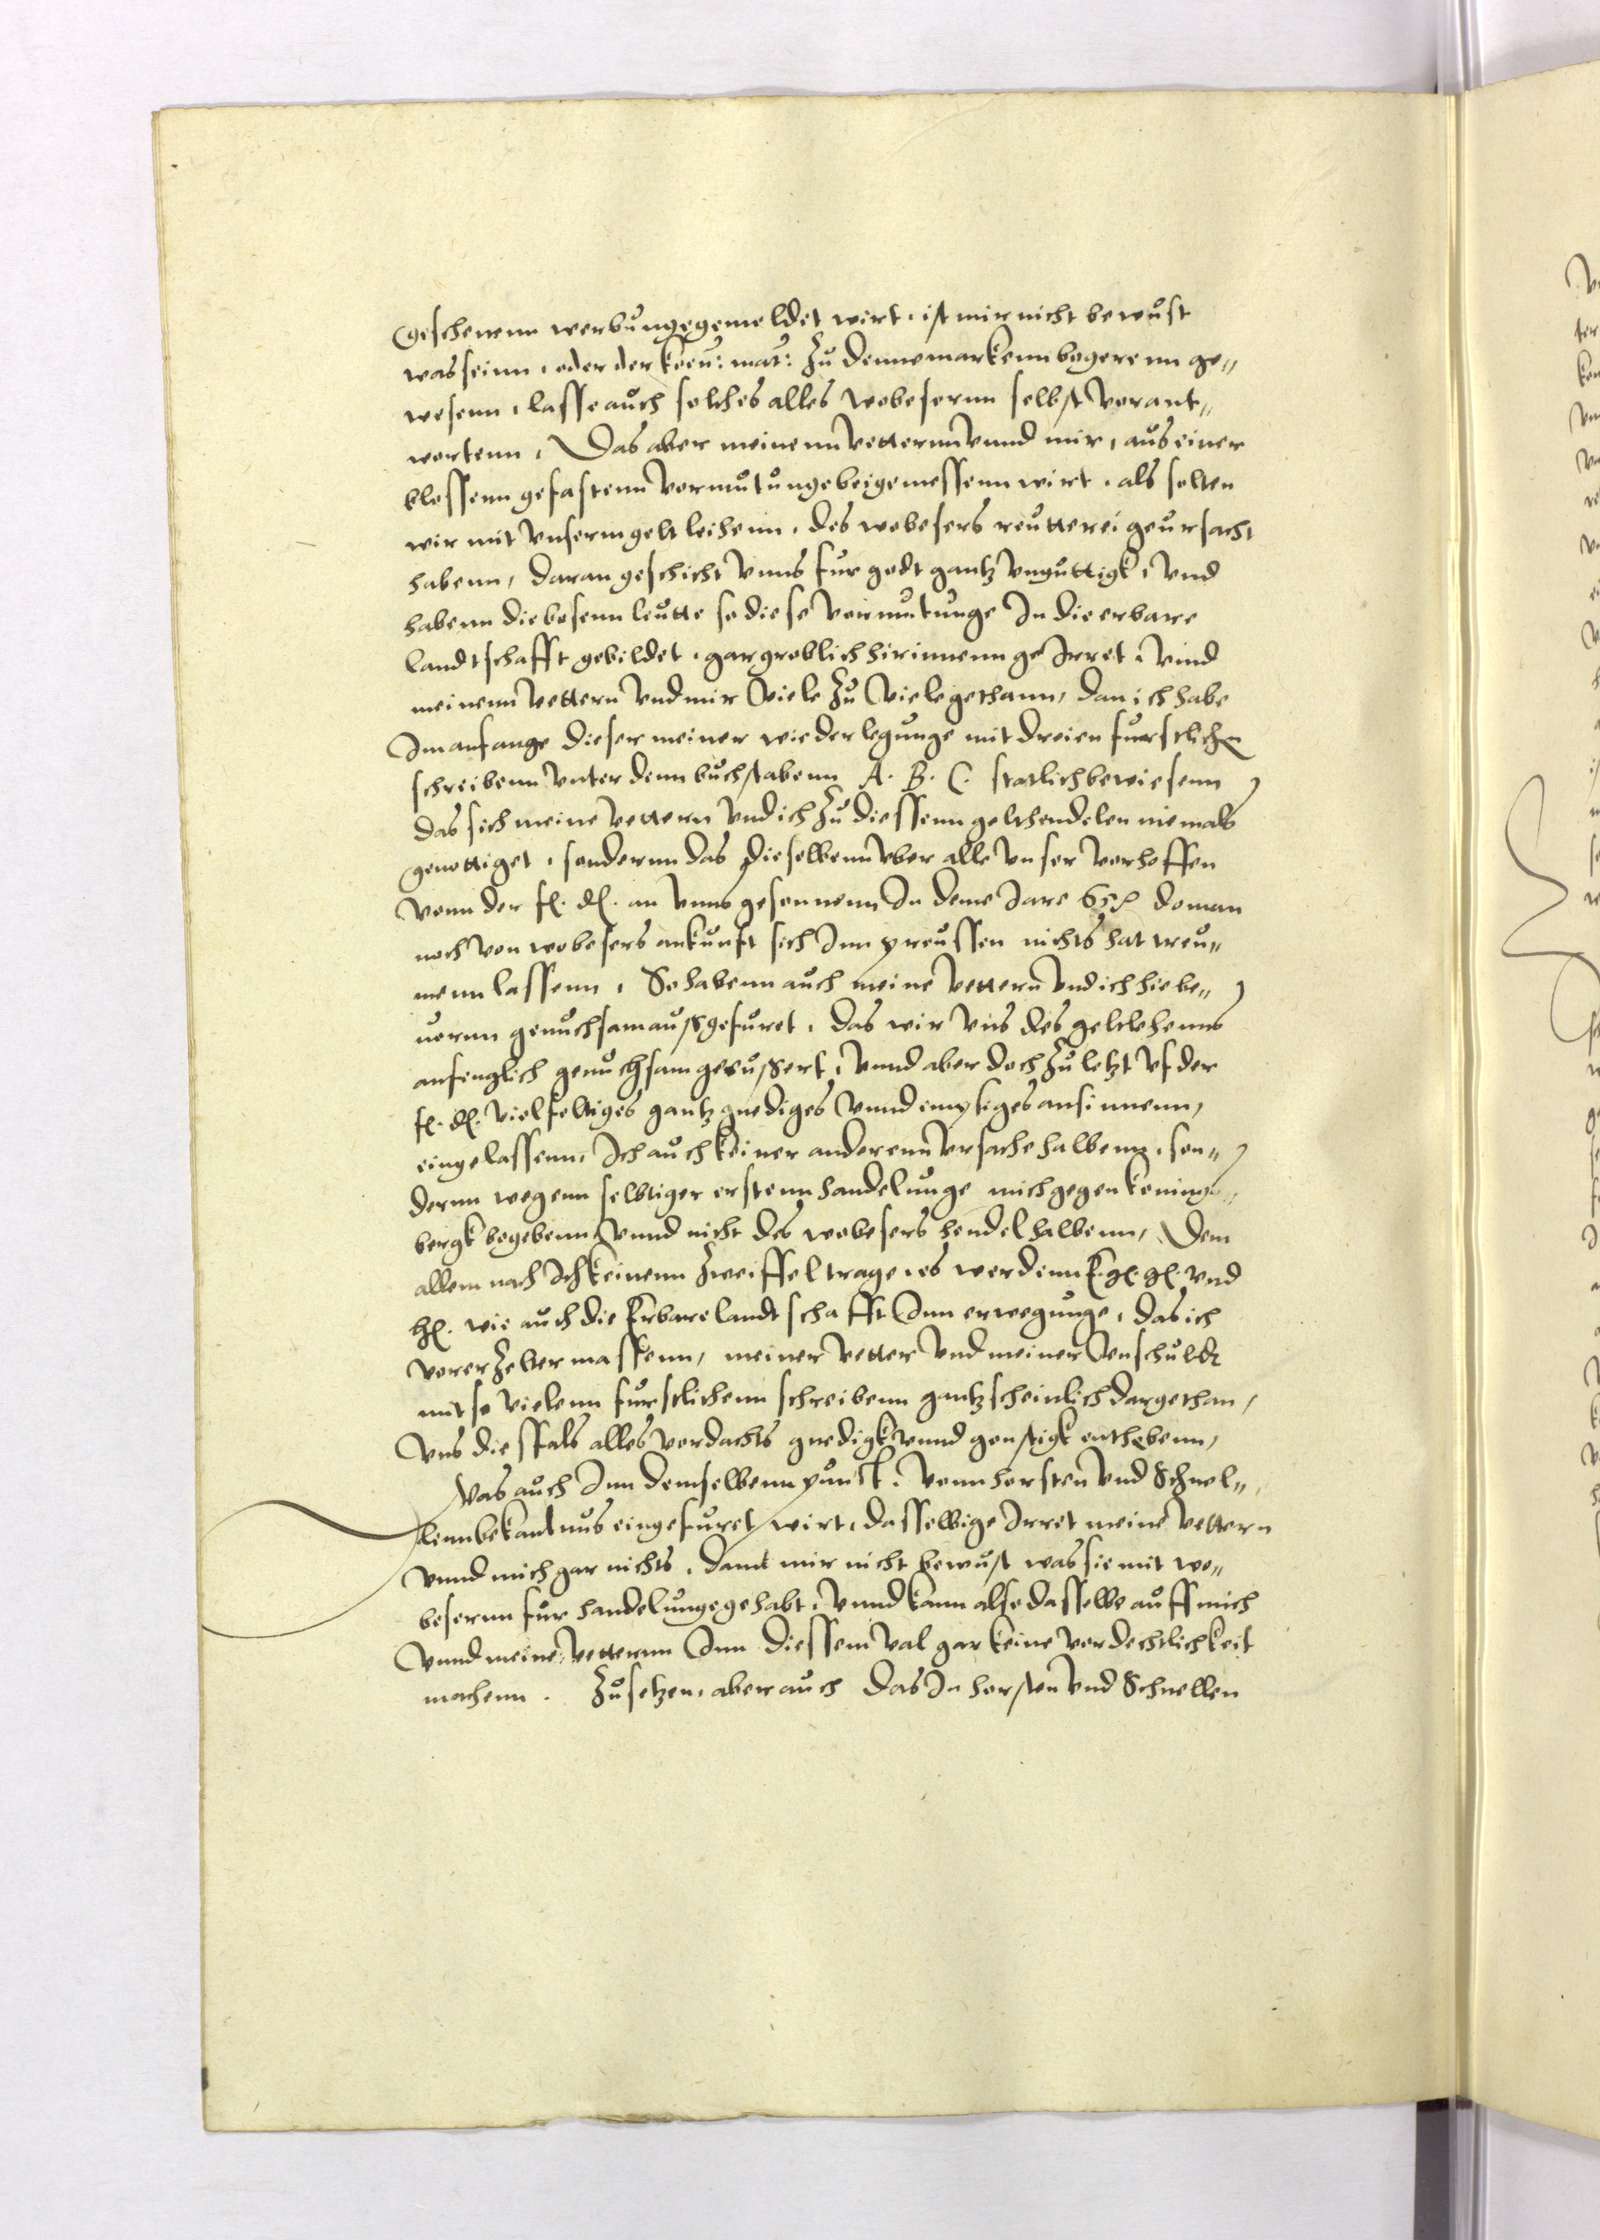 geschenenn werbungegemeldet wirt, ist mir nicht bewust
was seinn, oder der kön: mat: zu dennemarkenn begerenn ge„
wesenn, lasse auch solches alles wobesernn selbst verant„
wortenn, Das aber meinenn vetternn vnnd mir, aus einer
blossenn gefastenn vermutunge beigemessenn wirt, als solten
wir mit vnserm gelt leihenn, des wobesers reutterei geursacht
habenn, daran geschicht vnns fur godt gantz vnguttigk, vnd
habenn die bosenn leutte so diese vermutunge In die erbare
landtschafft gebildet, gar groblich hirinnenn geIrret, vnnd
meinenn vettern vnd mir viele zu viele gethann, dan ich habe
Im anfange dieser meiner wiederlegunge mit dreien furstlichen
schreibenn vnter denn buchstabenn A. B. C. statlich bewiesenn
das sich meine vettern vnd ich zu diessenn gelthendelen niemals
genottiget, sondernn das dieselbenn vber alle vnser verhoffen
vonn der fl. dl. an vnns gesonnenn In deme Jare 65 doman
noch von wobesers ankunft sich Inn preussen nichts hat treu„
menn lassenn, So habenn auch meine vettern vnd ich hiebe„
uornn genuchsam außgefuret, das wir vns des geltlehenns
anfenglich genuchsam geeußert, vnnd aber doch zuletzt vf der
fl. dl. vielfeltiges gantz gnediges vnnd empsiges ansinnenn,
eingelassenn, Ich auch keiner anderenn vrsache halbenn, son„
dernn wegenn selbtiger erstenn handelunge mich gegen konings„
bergk begebenn, vnnd nicht des wobesers hendel halbenn, Dem
allem nach Ich keinenn zweiffel trage, es werdenn E. gl. gl. vnd
hl. wie auch die Erbare landtschafft Inn erwegunge, das ich
vorerzelter massenn, meiner vetter vnd meiner vnschuldt
mit so vielenn furstlichenn schreibenn gantz scheinlich dargethan,
vns diessfals alles verdachts gnedigk vnnd gonstigk enthebenn,
Was auch Inn demselbenn punct, vonn horsten vnd Schnel„
lenn bekantnus eingefuret wirt, dasselbige Irret meine vettern
vnnd mich gar nichts, dann mir nicht bewust was sie mit wo„
besernn fur handelunge gehabt, vnnd kann also dasselbe auff mich
vnnd meine vetternn Inn diessem val gar keine verdechtlichkeit
machenn. Zusetzen, aber auch das In horsten vnd Schnellen